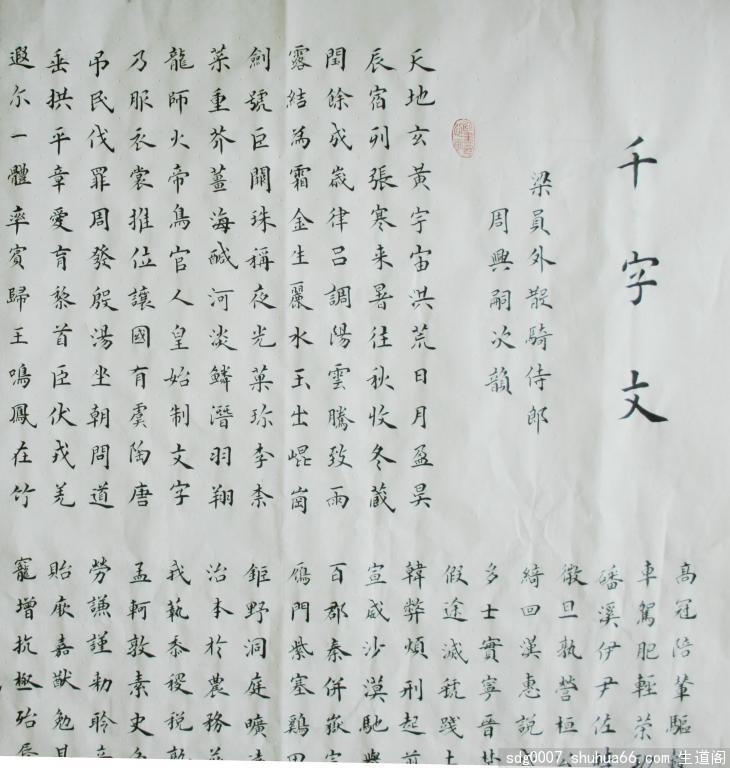 千字文
梁員外散騎侍郎
周興嗣次韻
天地玄黃宇宙洪荒日月盈昃
辰宿列張寒来暑往秋收冬藏
閏餘成嵗律吕調陽雲騰致雨
露結為霜金生麗水玉出崐崗
劍號巨闕珠稱夜光菓珎李柰
菜重芥薑海醎河淡鱗潛羽翔
龍師火帝鳥官人皇始制文字
乃服衣裳推位讓國有虞陶唐
弔民伐罪周發殷湯坐朝問道
垂拱平章愛育黎首臣伏戎羌
遐尔一體率賓歸王鳴鳳在竹
高冠陪輦驅
車駕肥輕策
磻溪伊尹佐
微旦孰營桓
綺回漢惠說
多士寔寧晉
假途滅虢踐土
韓弊煩刑起
宣威沙漠馳
百郡秦併嶽
鴈門紫塞鷄田
鉅野洞庭曠
治本於農務
我藝黍稷稅
孟軻敦素史
勞謙謹勑聆
貽厥嘉猷勉
寵增抗極殆
sdg0007.shuhua66.com 生道阁